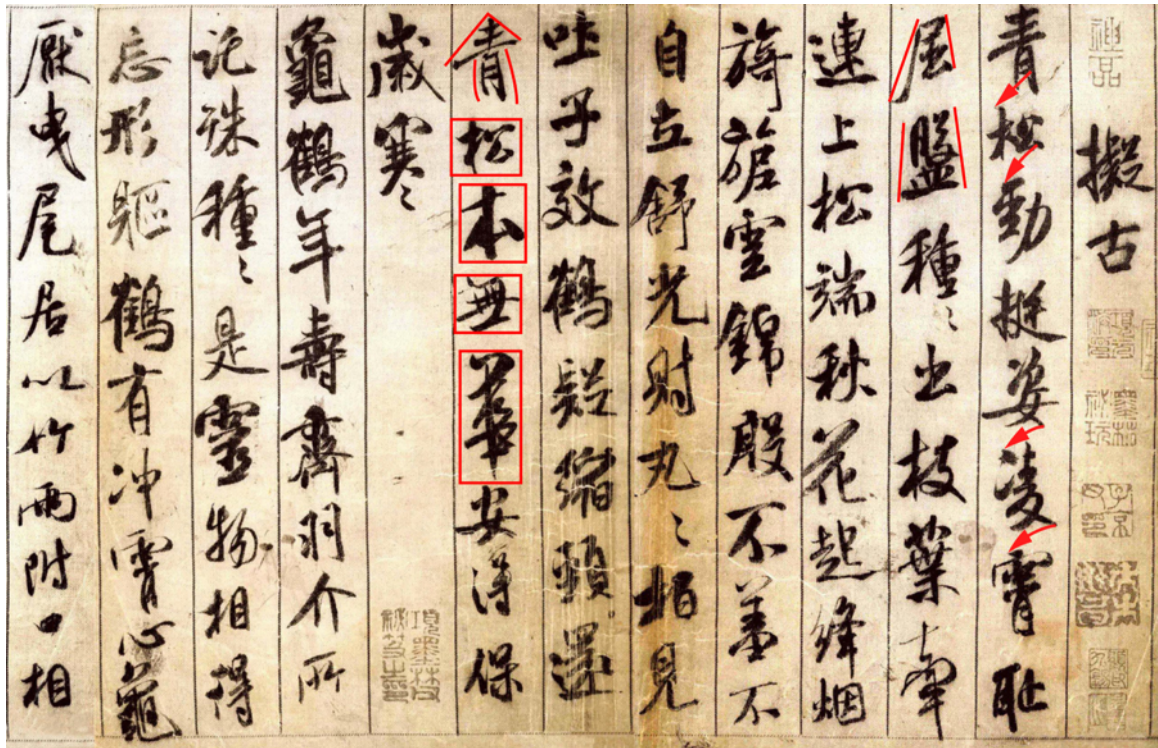 神品
擬古
青松勁挺姿凌霄恥
屈盤種〻出枝葉牽
連上松端秋花起絳烟
旖旎雲錦殷不羞不
自立舒光射丸〻柏見
吐子效鶴疑縮頸還
青松本無華安得保
歲寒〻
龜鶴年壽齊羽介所
託殊種〻是靈物相得
忘形軀鶴有沖霄心龜
厭曳尾居以竹兩附口相